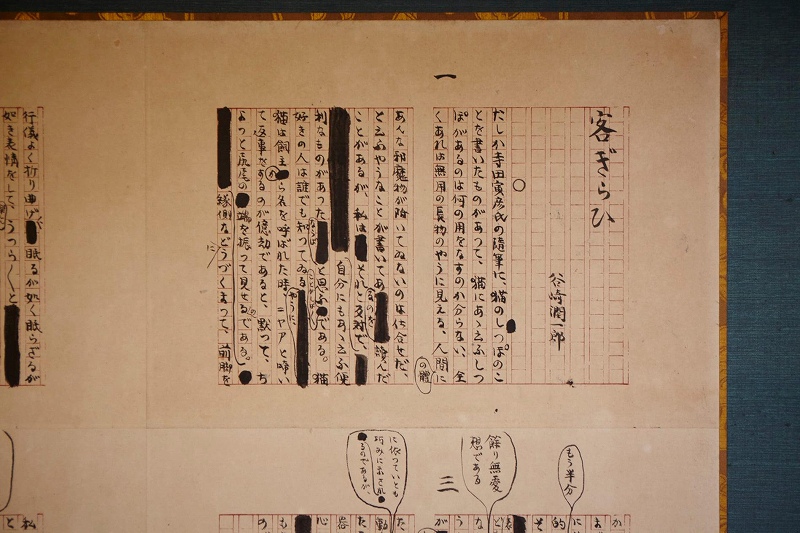 一
客ぎらひ
谷崎潤一郎
たしか寺田寅彦氏の隨筆に、猫のしつぽのこ
とを書いたものがあつて、猫にあゝ云ふしつ
ぽがあるのは何の用をなすのか分らない、全
くあれは無用の長物のやうに見える、人間に
の體
あんな邪魔物が附いてゐないのは仕合せだ、
と云ふやうなことが書いてあ
るのを
讀んだ
ことがあるが、私は
それと反対で、
自分にもあゝ云ふ便
利なものがあつた
ならば
と思ふ
ことがしばしば
である。猫
好きの人は誰でも知つてゐる
やうに、
猫は飼主
か
ら名を呼ばれた時、ニヤアと啼い
て返事をするのが億劫であると、默つて、ち
よつと尻尾の
端を振つて見せる
の
である。
縁側など
に
うづくまつて、前脚を
行儀よく折り曲げ、
眠るが如く眠らざるが
如き表情をして、うつら〳〵と
もう半分
餘り無愛
想である
三
に依つていとも
巧みに示す
るのであるが、
私
と